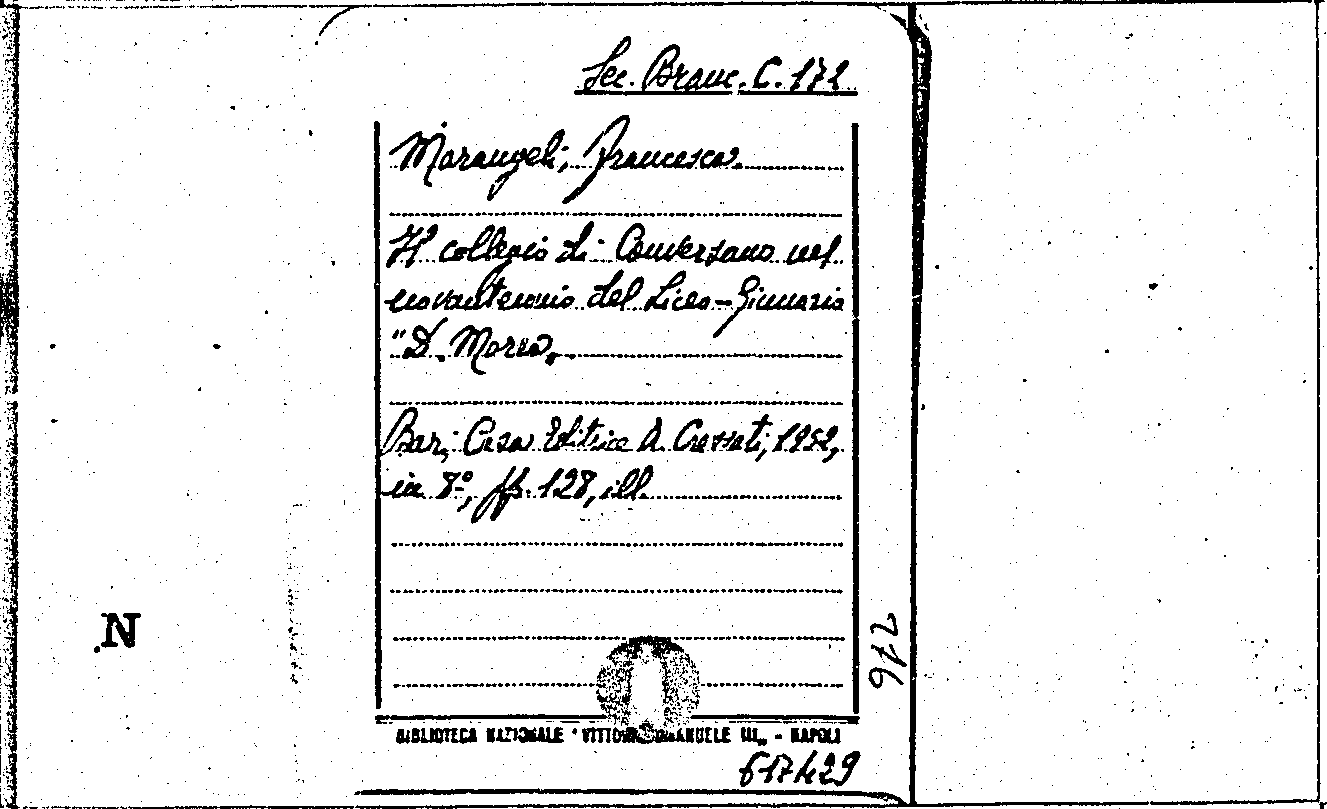 Sec. Branc. C. 172
Marangeli, Francesco.
Il collegio di Conversano nel
novantennio del Liceo-Ginnasio
"D. Morea„
Bari, Casa Editrice A. Cressati, 1952,
in 8º, pp. 128, ill.
972
N
BIBLIOTECA NAZIONALE "VITTORIO EMANUELE III„ - NAPOLI
617429